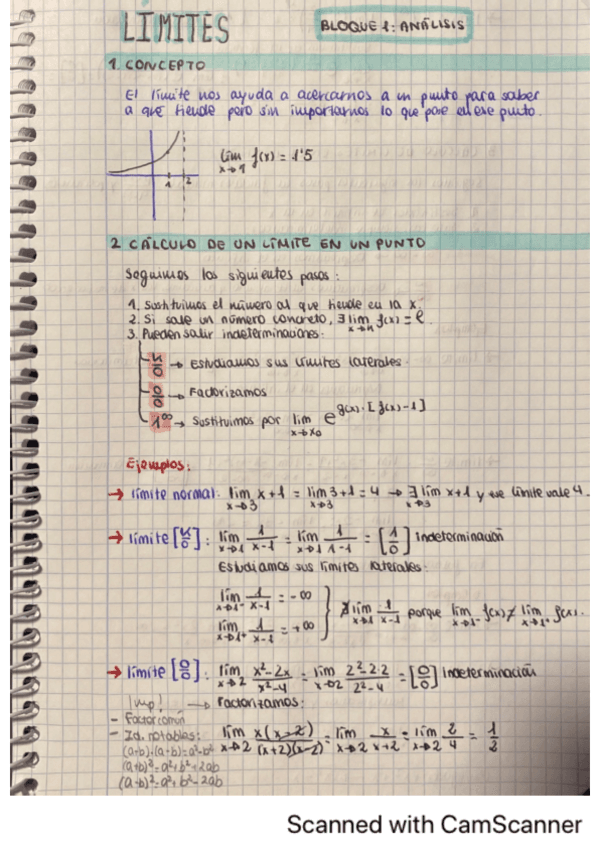 LÍMITES
BLOQUE 1: ANÁLISIS
1. CONCEPTO
El límite nos ayuda a acercarnos a un punto para saber
a qué tiende pero sin importarnos lo que pase en ese punto.
lim f(x) = 1'5
x→1
1 2
2 CÁLCULO DE UN LÍMITE EN UN PUNTO
Seguimos los siguientes pasos:
1. Sustituimos el número al que tiende en la x.
2. Si sale un número concreto, ∃ lim f(x) = ℓ.
x→n
3. Pueden salir indeterminaciones:
K/0 → Estudiamos sus límites laterales.
0/0 → Factorizamos
1^∞ → Sustituimos por lim e^(g(x)·[f(x)-1])
x→x₀
Ejemplos:
→ límite normal: lim x+1 = lim 3+1 = 4 → ∃ lim x+1 y ese límite vale 4.
x→3 x→3 x→3
→ límite [K/0]: lim 1/(x-1) = lim 1/(1-1) = [1/0] Indeterminación
x→1 x→1
Estudiamos sus límites laterales:
lim 1/(x-1) = -∞
x→1⁻
lim 1/(x-1) = +∞
x→1⁺
∄ lim 1/(x-1) porque lim f(x) ≠ lim f(x).
x→1 x→1⁻ x→1⁺
→ límite [0/0]: lim (x²-2x)/(x²-4) = lim (2²-2·2)/(2²-4) = [0/0] Indeterminación
x→2 x→2
Imp! → Factorizamos:
- Factor común
- Id. notables:
lim x(x-2)/(x+2)(x-2) = lim x/(x+2) = lim 2/4 = 1/2
x→2 x→2 x→2
(a-b)·(a+b)=a²-b²
(a+b)²=a²+b²+2ab
(a-b)²=a²+b²-2ab
Scanned with CamScanner